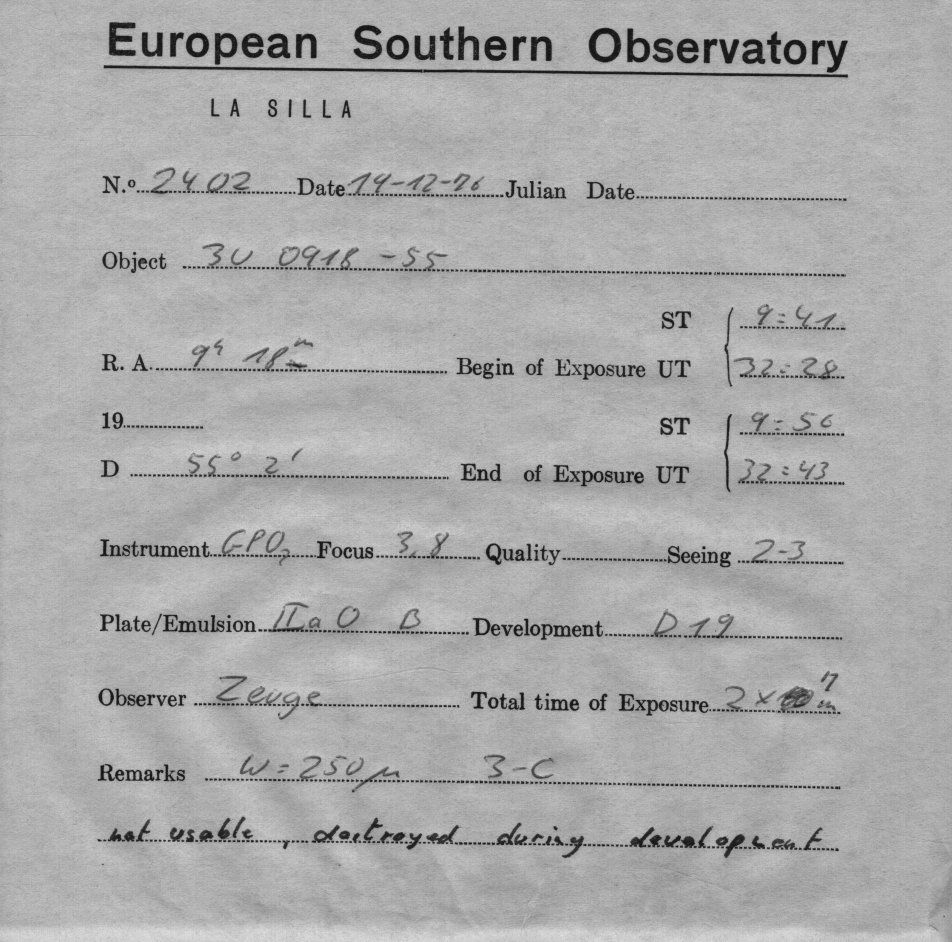 European Southern Observatory
LA SILLA
N.º 2402 Date 14-12-76 Julian Date
Object 3U 0918 -55
ST 9:41
R. A. 9h 18m Begin of Exposure UT 32:28
19 ST 9:56
D 55° 2' End of Exposure UT 32:43
Instrument GPO, Focus 3,8 Quality Seeing 2-3
Plate/Emulsion IIa O B Development D 19
Observer Zeuge Total time of Exposure 2 x 7 m
Remarks W = 250 μ 3-C
not usable, destroyed during development